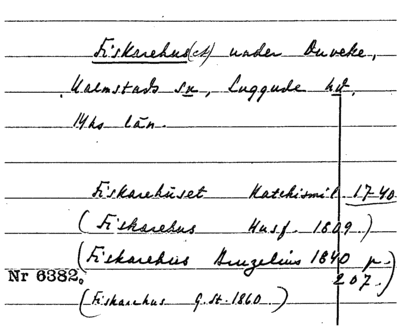 Fiskarehus(et) under Duveke,
Kalmstads sn, Luggude hd.
Mhs län.
Fiskarehuset Katekismil. 1740
(Fiskarehus Husf. 1809.)
(Fiskarehus Bruzelius 1840 p.
207.)
Nr 6382.
(Fiskarehus G. St. 1860)